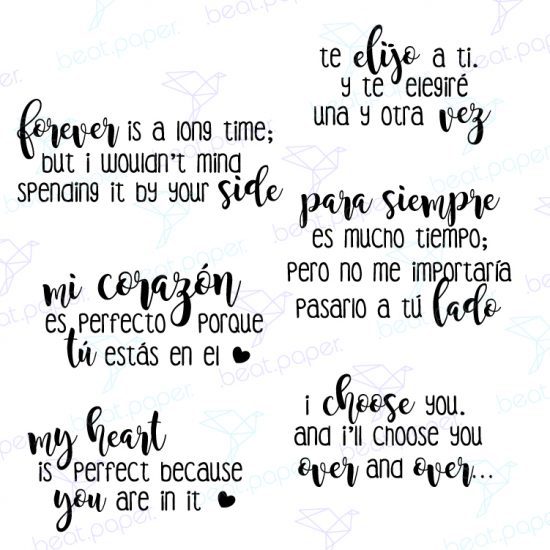 forever is a long time;
but i wouldn't mind
spending it by your side
te elijo a ti.
y te elegiré
una y otra vez
para siempre
es mucho tiempo;
pero no me importaría
pasarlo a tú lado
mi corazón
es perfecto porque
tú estás en el
my heart
is perfect because
you are in it
i choose you.
and i'll choose you
over and over...
beat.paper.
beat.paper.
beat.paper.
beat.paper.
beat.paper.
beat.paper.